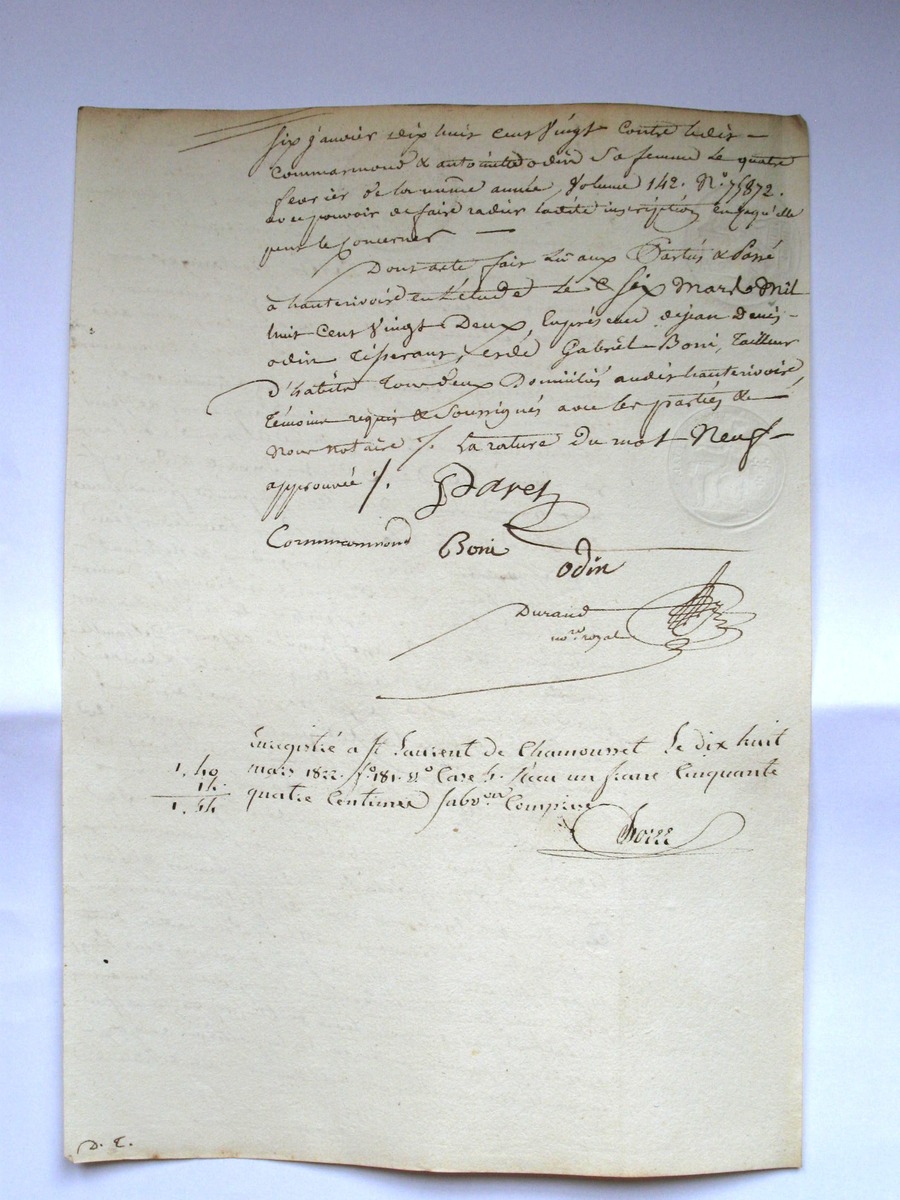 six janvier dix huit cent Vingt Contre ledit
Commarmond & antoinette odin Sa femme Le quatre
fevrier de la même année, Volume 142. N.º 75872.
avec pouvoir de faire radier ladite inscription en ce qu'elle
peut le Concerner
Dont acte fait Lu aux Parties & Passé
à hauterivoire en L'étude Le Six Mars Mil
huit Cent Vingt Deux, En présence de jean Denis
odin Tisserant, et de Gabriel Boni, Tailleur
D'habits Tous deux Domiciliés audit hauterivoire
Témoins requis & Soussignés avec les parties &
Nous Notaire ./. La rature du mot Neuf
approuvée ./. Daret
Commarmond Boni odin
Durand
no.re royal
Enregistré a St Laurent de Chamousset Le dix huit
mars 1822. f.º 181. Case Recu un franc Cinquante
quatre Centimes Compris
1, 40
14.
1, 54
D. T.